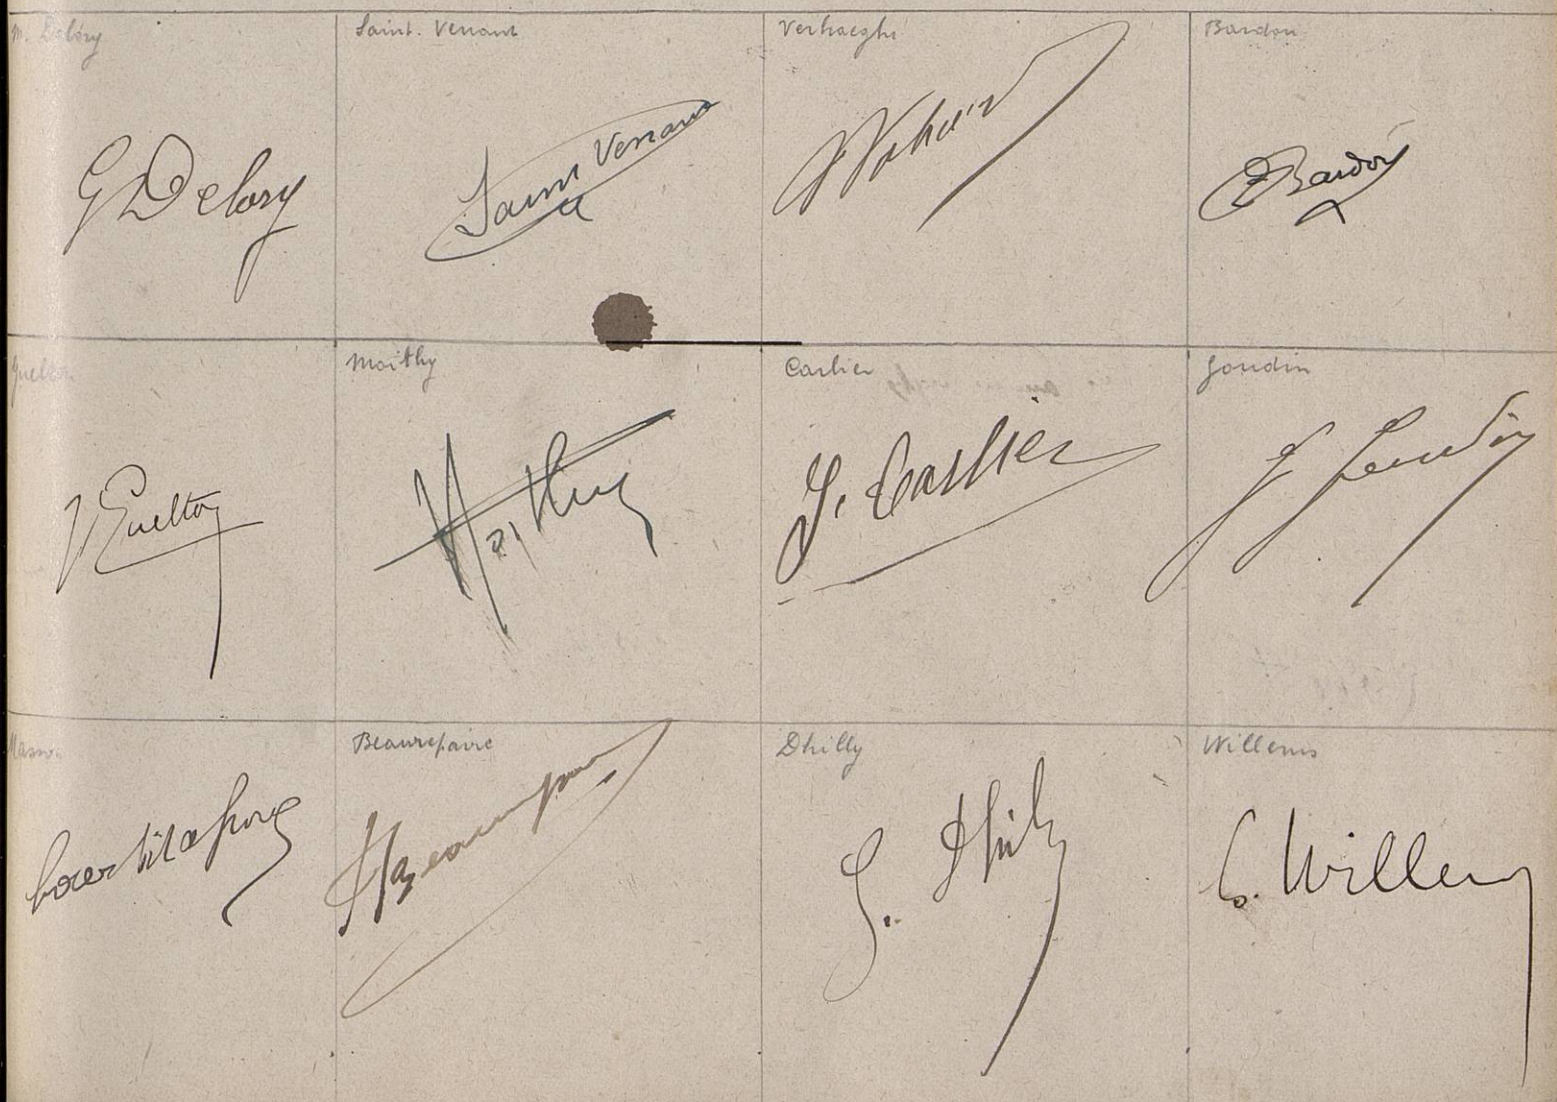 M. Delory
Saint. Venant
Verhaeghe
Bardou
G Delory
Saint Venant
Bardou
Guelton
Moithy
Carlier
Goudin
Guelton
Moithy
J. Carlier
J Goudin
Masson
Beaurepaire
Dhilly
Willems
Beaurepaire
G. Dhilly
C. Willems